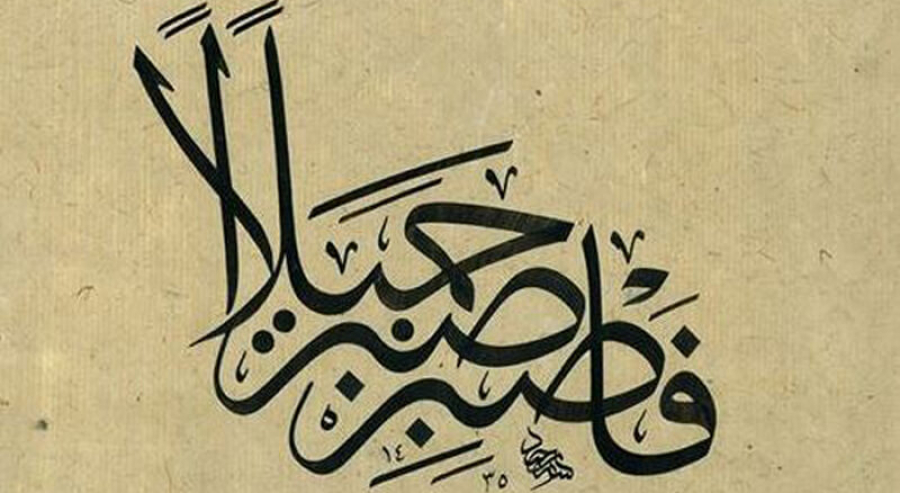 فَاصْبِرْ صَبْرًا جَمِيلًا
١٤٣٥